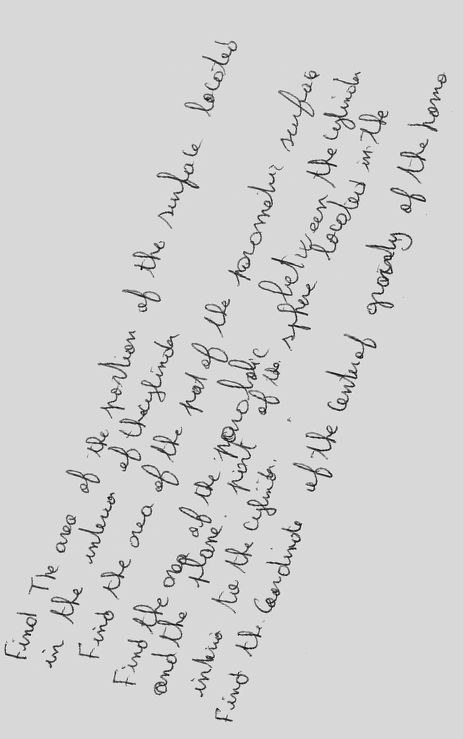 Find The area of the portion of the surface located
in the interior of the cylinder
Find the area of the pat of the parametric surfac
Find the area of the parabolic between the cylinder
and the plane. pirt of the sphere located in the
interio to the cylinder.
Find the Coordinate of the Center of gravaly of the homo